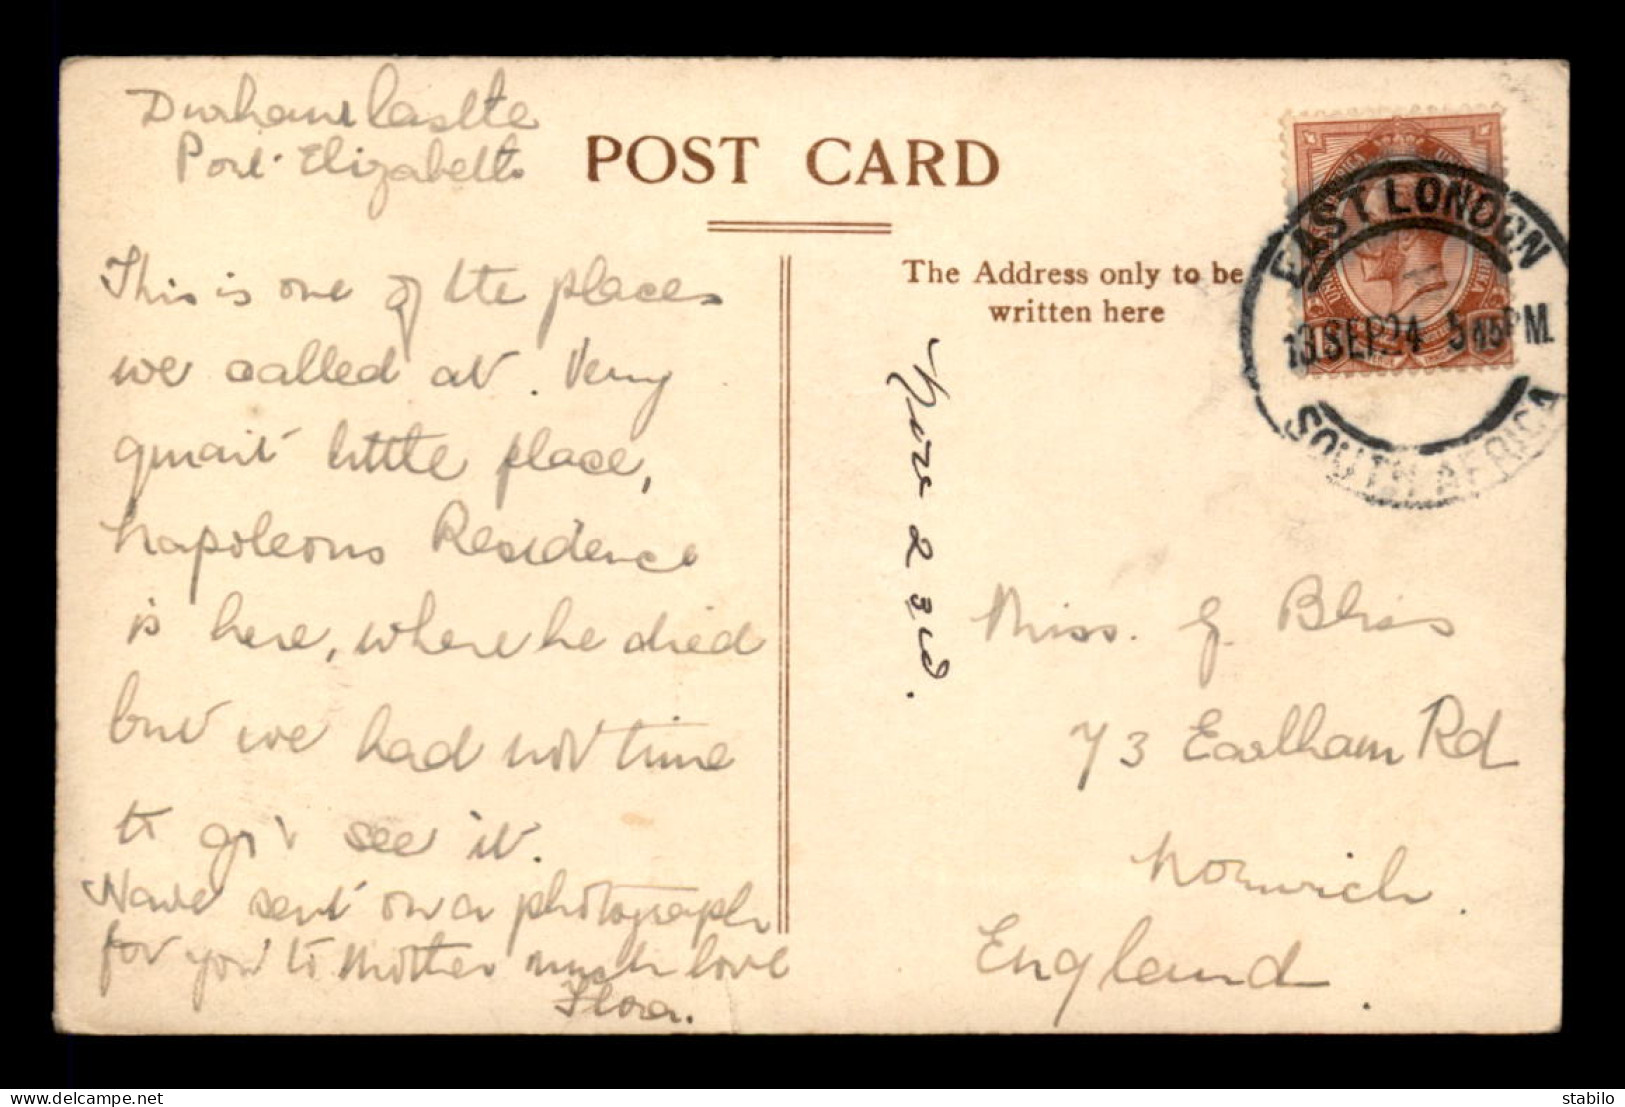 Durham Castle
Port Elizabeth
POST CARD
This is one of the places
we called at. Very
quait little place,
Napoleons Residence
is here, where he died
but we had not time
to go & see it.
Have sent on a photograph
for you to Mother much love
Flora.
The Address only to be
written here
EAST LONDON
13 SEP 24 5 45 PM
SOUTH AFRICA
Miss. G. Bliss
73 Earlham Rd
Norwich.
England.
delcampe.net
stabilo